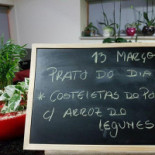 13 MARÇO
PRATO DO DIA
* COSTELETAS DO PO
C/ ARROZ DO
LEGUMES